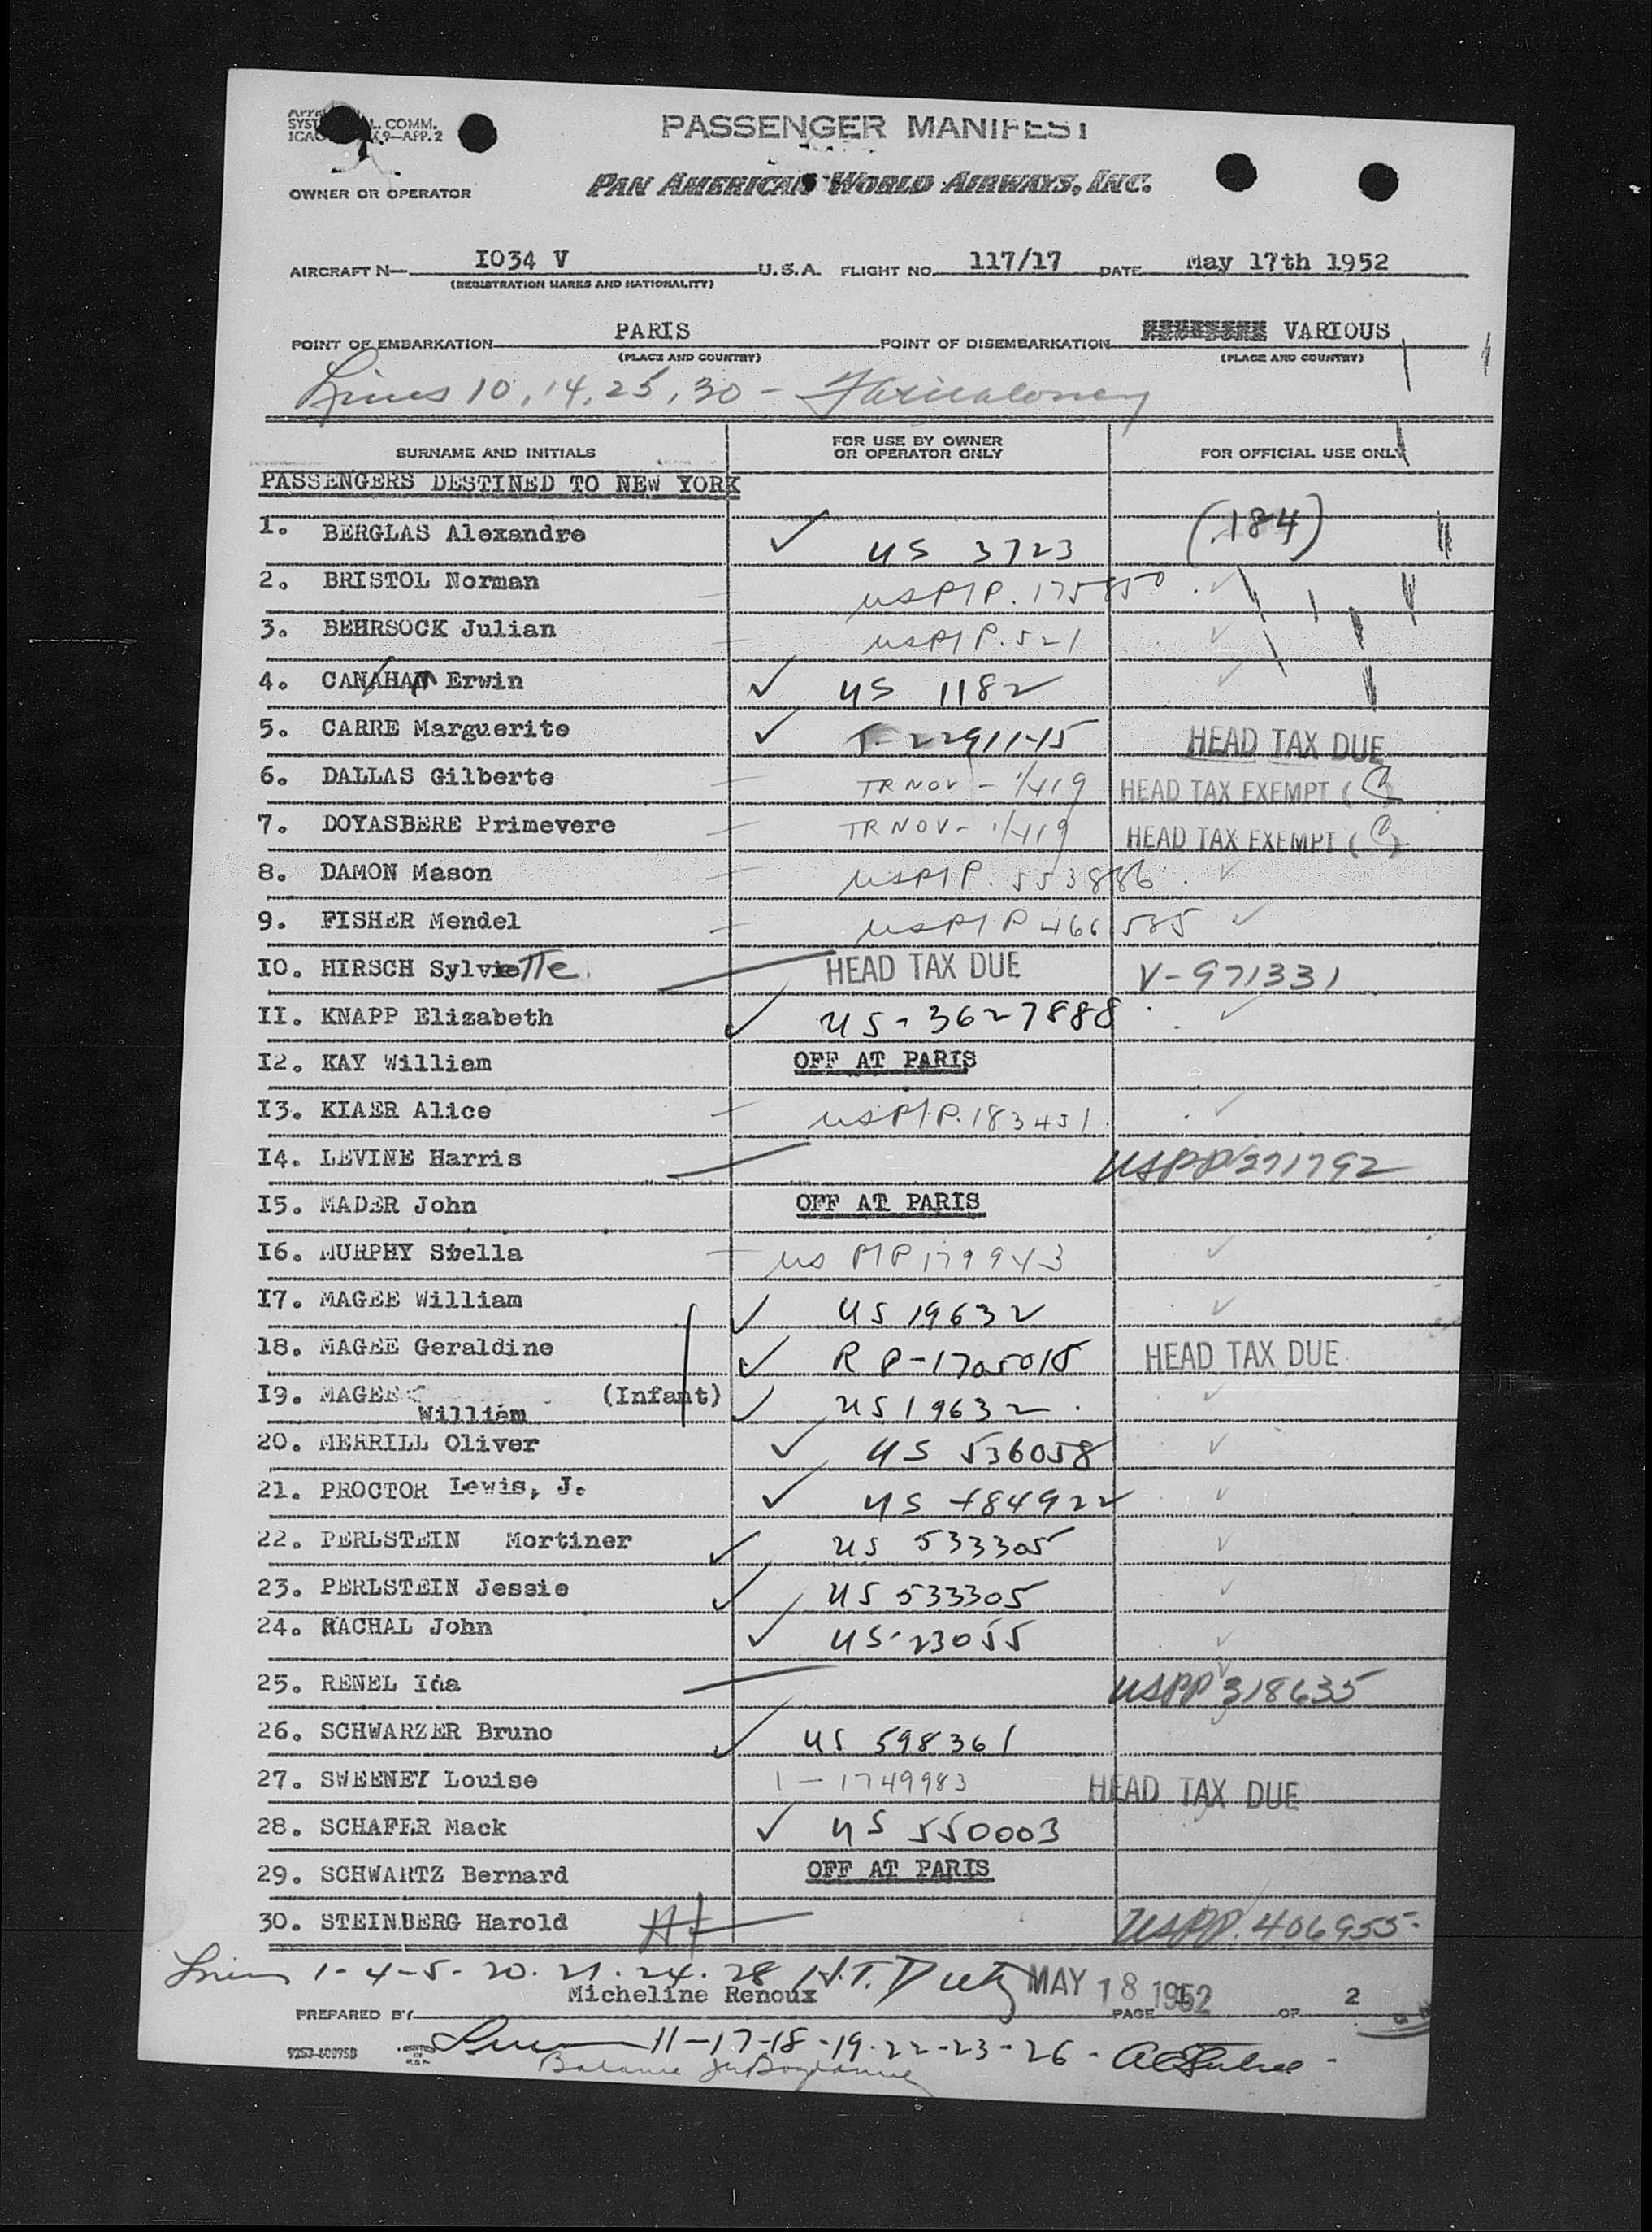 L. COMM.
9—APP. 2
PASSENGER MANIFEST
OWNER OR OPERATOR
PAN AMERICAN WORLD AIRWAYS, INC.
AIRCRAFT N— I034 V U.S.A. FLIGHT NO. 117/17 DATE May 17th 1952
(REGISTRATION MARKS AND NATIONALITY)
POINT OF EMBARKATION PARIS POINT OF DISEMBARKATION VARIOUS
(PLACE AND COUNTRY) (PLACE AND COUNTRY)
Lines 10, 14, 25, 30 -
SURNAME AND INITIALS FOR USE BY OWNER OR OPERATOR ONLY FOR OFFICIAL USE ONLY
PASSENGERS DESTINED TO NEW YORK
1. BERGLAS Alexandre ✓ US 3723 (184)
2. BRISTOL Norman USPP. 175850 ✓
3. BEHRSOCK Julian USPP. 521 ✓
4. CANAHAM Erwin ✓ US 1182 ✓
5. CARRE Marguerite ✓ T-2291145 HEAD TAX DUE
6. DALLAS Gilberte TR NOV - 1/419 HEAD TAX EXEMPT (C)
7. DOYASBERE Primevere TR NOV - 1/419 HEAD TAX EXEMPT (C)
8. DAMON Mason USPP. 553886 ✓
9. FISHER Mendel USPP 466585 ✓
I0. HIRSCH Sylviette HEAD TAX DUE V-971331
II. KNAPP Elizabeth ✓ US-3627888 ✓
I2. KAY William OFF AT PARIS
I3. KIAER Alice USPP. 183451 ✓
I4. LEVINE Harris USPP 271792
I5. MADER John OFF AT PARIS
I6. MURPHY Stella US PP 179943 ✓
I7. MAGEE William ✓ US 19632 ✓
18. MAGEE Geraldine ✓ R P-1705015 HEAD TAX DUE
I9. MAGEE William (Infant) ✓ US 19632 ✓
20. MERRILL Oliver ✓ US 536058 ✓
21. PROCTOR Lewis, J. ✓ US 484922 ✓
22. PERLSTEIN Mortiner ✓ US 533305 ✓
23. PERLSTEIN Jessie ✓ US 533305 ✓
24. RACHAL John ✓ US-23055 ✓
25. RENEL Ida USPP 318635
26. SCHWARZER Bruno ✓ US 598361 ✓
27. SWEENEY Louise 1-1749983 HEAD TAX DUE
28. SCHAFER Mack ✓ US 550003
29. SCHWARTZ Bernard OFF AT PARIS
30. STEINBERG Harold USPP. 406955
Lines 1-4-5-20-21-24-28 H.T. MAY 18 1952
PREPARED BY Micheline Renoux PAGE 1 OF 2
11-17-18-19-22-23-26-
Balance